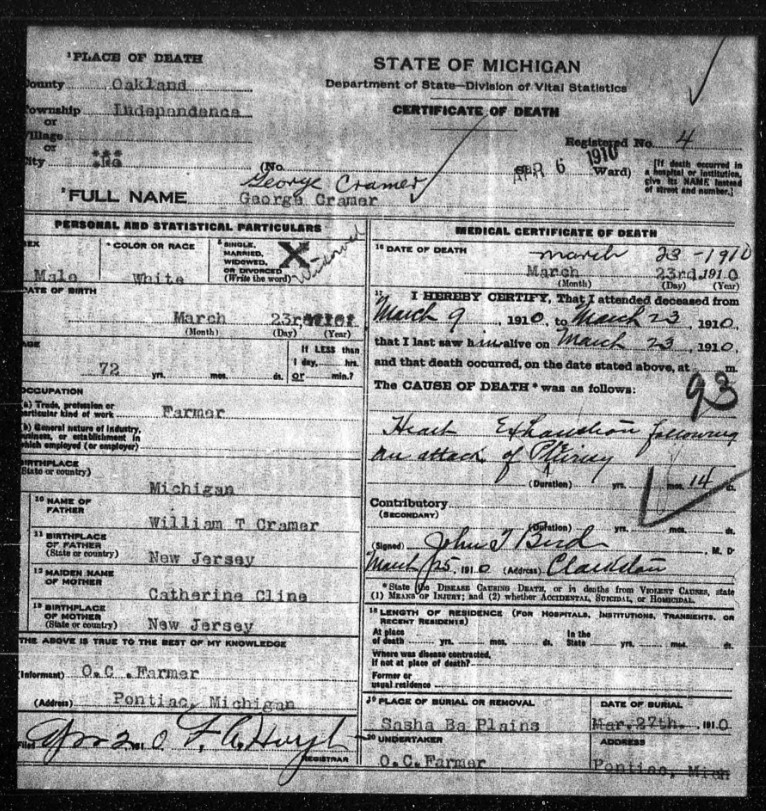 ¹PLACE OF DEATH
STATE OF MICHIGAN
Department of State—Division of Vital Statistics
CERTIFICATE OF DEATH
County Oakland
Township Independence
or
Village
or
City
Registered No. 4
APR 6 1910
(No.
Ward)
[If death occurred in
a hospital or institution,
give its NAME instead
of street and number.]
George Cramer
²FULL NAME George Cramer
PERSONAL AND STATISTICAL PARTICULARS
SEX
Male
⁴COLOR OR RACE
White
⁵SINGLE,
MARRIED,
WIDOWED,
OR DIVORCED
(Write the word)
X
Widowed
DATE OF BIRTH
March 23rd
(Month) (Day) (Year)
AGE
72 yrs. mos. ds.
If LESS than
1 day, hrs.
or min.?
OCCUPATION
(a) Trade, profession or
particular kind of work Farmer
(b) General nature of industry,
business, or establishment in
which employed (or employer)
BIRTHPLACE
(State or country)
Michigan
¹⁰NAME OF
FATHER
William T Cramer
¹¹BIRTHPLACE
OF FATHER
(State or country)
New Jersey
¹²MAIDEN NAME
OF MOTHER
Catherine Cline
¹³BIRTHPLACE
OF MOTHER
(State or country)
New Jersey
THE ABOVE IS TRUE TO THE BEST OF MY KNOWLEDGE
(Informant) O.C. Farmer
(Address) Pontiac, Michigan
Filed Apr 2 191 0
REGISTRAR
MEDICAL CERTIFICATE OF DEATH
¹⁶DATE OF DEATH
March 23 - 1910
March 23rd, 1910
(Month) (Day) (Year)
¹⁷I HEREBY CERTIFY, That I attended deceased from
March 9, 1910, to March 23, 1910,
that I last saw him alive on March 23, 1910,
and that death occurred, on the date stated above, at m.
The CAUSE OF DEATH * was as follows:
93
Heart Exhaustion following
an attack of Plurisy
(Duration) yrs. mos. 14 ds.
Contributory
(SECONDARY)
(Duration) yrs. mos. ds.
(Signed) John T Bird, M. D.
March 25, 1910 (Address) Clarkston
*State the DISEASE CAUSING DEATH, or in deaths from VIOLENT CAUSES, state
(1) MEANS OF INJURY; and (2) whether ACCIDENTAL, SUICIDAL, or HOMICIDAL.
¹⁸LENGTH OF RESIDENCE (FOR HOSPITALS, INSTITUTIONS, TRANSIENTS, OR
RECENT RESIDENTS)
At place
of death yrs. mos. ds.
In the
State yrs. mos. ds.
Where was disease contracted,
if not at place of death?
Former or
usual residence
¹⁹PLACE OF BURIAL OR REMOVAL
Sasha Ba Plains
DATE OF BURIAL
Mar.27th. 1910
²⁰UNDERTAKER
O.C.Farmer
ADDRESS
Pontiac, Mich